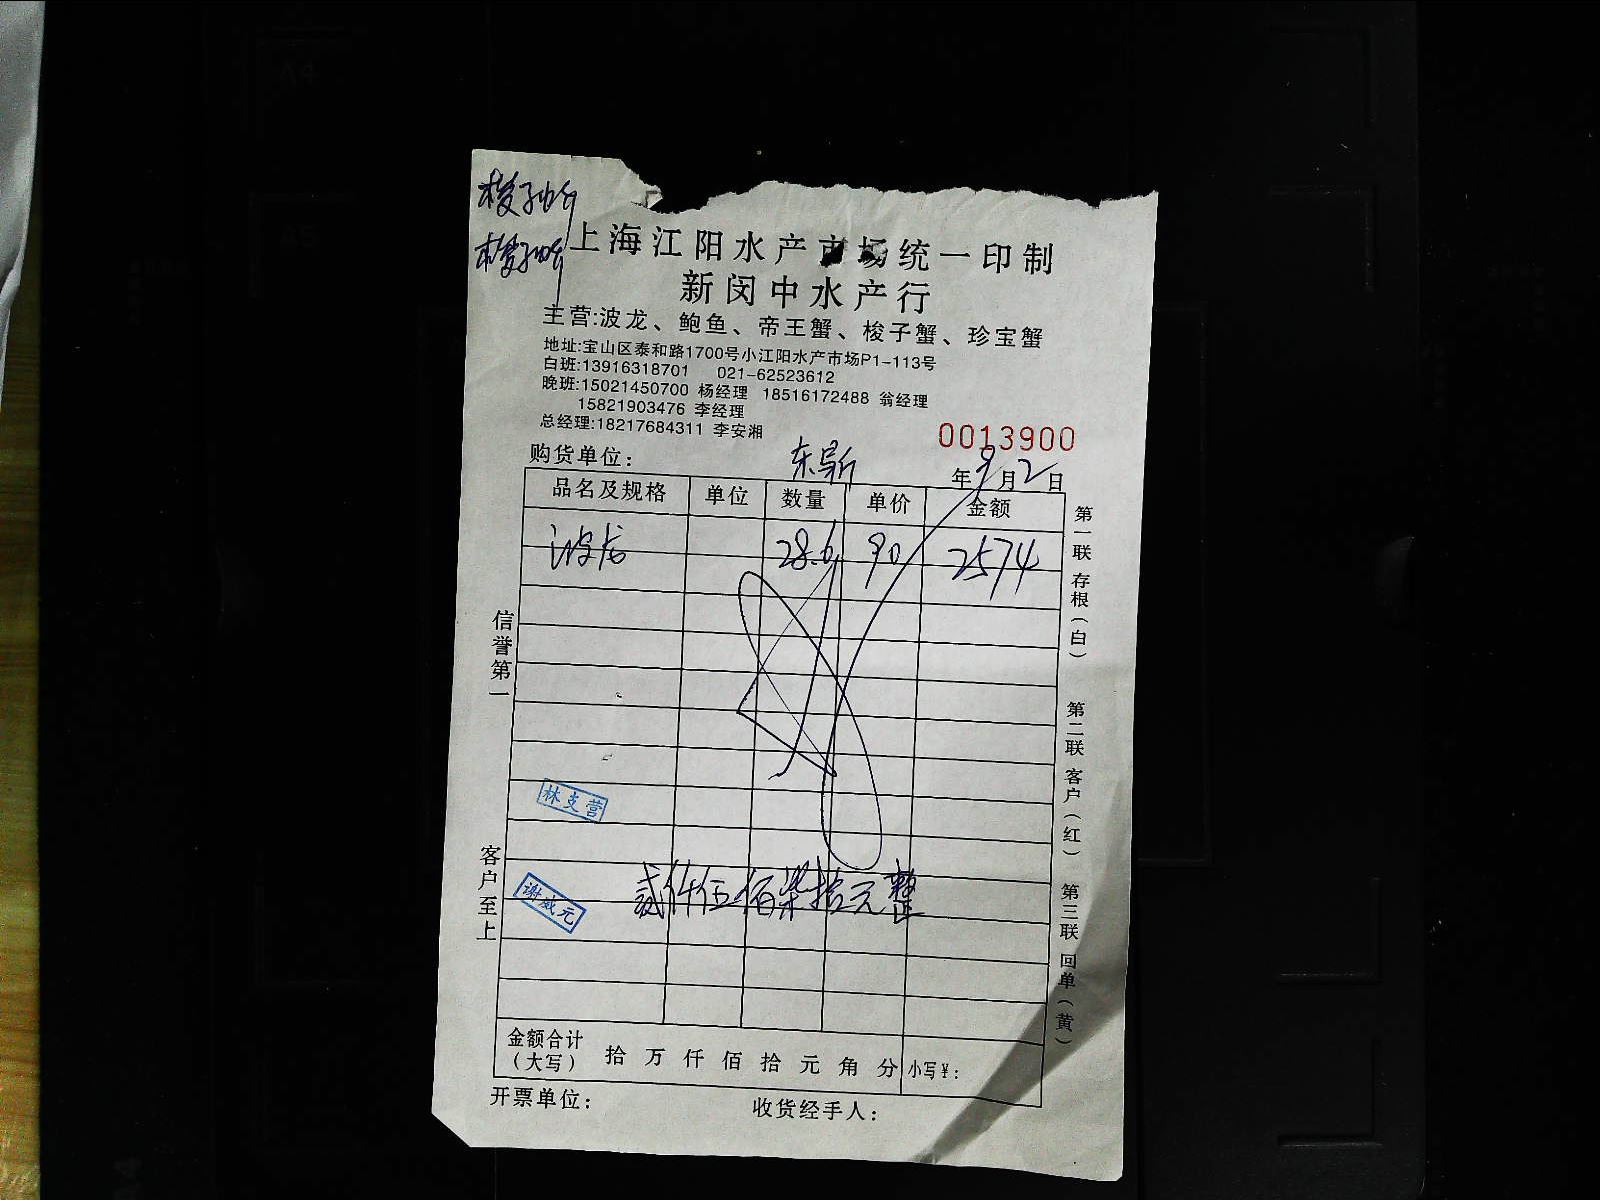 梭子蟹
梭子蟹
上海江阳水产市场统一印制
新闵中水产行
主营:波龙、鲍鱼、帝王蟹、梭子蟹、珍宝蟹
地址:宝山区泰和路1700号小江阳水产市场P1-113号
白班:13916318701 021-62523612
晚班:15021450700 杨经理 18516172488 翁经理
15821903476 李经理
总经理:18217684311 李安湘
0013900
购货单位: 年9月2日
品名及规格 单位 数量 单价 金额
波龙 28.6 90 2574
信誉第一
客户至上
林支营
谢威元
贰仟伍佰柒拾元整
金额合计
(大写) 拾 万 仟 佰 拾 元 角 分 小写¥:
开票单位: 收货经手人:
第一联 存根(白) 第二联 客户(红) 第三联 回单(黄)